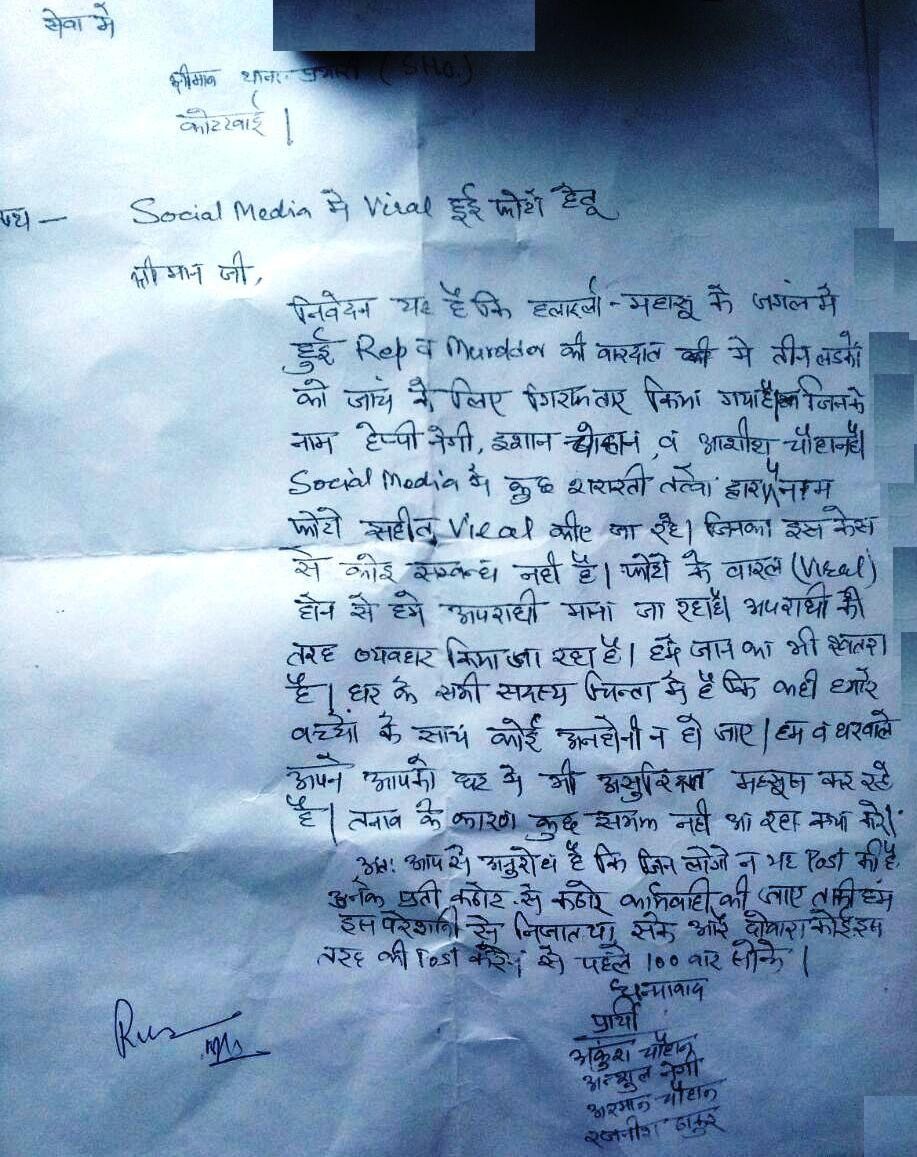 सेवा में
श्रीमान थाना प्रभारी (SHO.)
कोटखाई |
Social Media मे Viral हुई फोटो हेतू
श्री मान जी,
निवेदन यह है कि हलाईला - महासू के जगंल मे
हुई Rep व Murdder की वारदात मे तीन लडको
को जांच के लिए गिरफतार किया गया है। जिनके
नाम हैप्पी नेगी, इशान चोहान, व आशीश चौहान है।
Social Media मे कुछ शरारती तत्वो द्वारा नाम
फोटो सहीत Viral कीए जा रहे। जिनका इस केस
से कोई सम्बन्ध नही है। फोटो के वारल (Viral)
होन से हमे अपराधी माना जा रहा है। अपराधी की
तरह व्यवहार किया जा रहा है। हमे जान का भी खतरा
है। घर के सभी सदस्य चिन्ता मे है कि कही हमारे
बच्चों के साथ कोई अनहोनी न हो जाए। हम व घरवाले
अपने आपको घर मे भी असुरक्षित महसूस कर रहे
है। तनाव के कारण कुछ समझ नही आ रहा क्या करे।
अतः आप से अनुरोध है कि जिन लोगो न यह Post की है
उनके प्रती कठोर से कठोर कार्यवाही की जाए ताकी हम
इस परेशानी से निजात पा सके और दोबारा कोई इस
तरह की Post करने से पहले 100 बार सोचे |
धन्यावाद
प्रार्थी
अंकुश चौहान
अन्शुल नेगी
अरमान चौहान
रजनीश ठाकुर